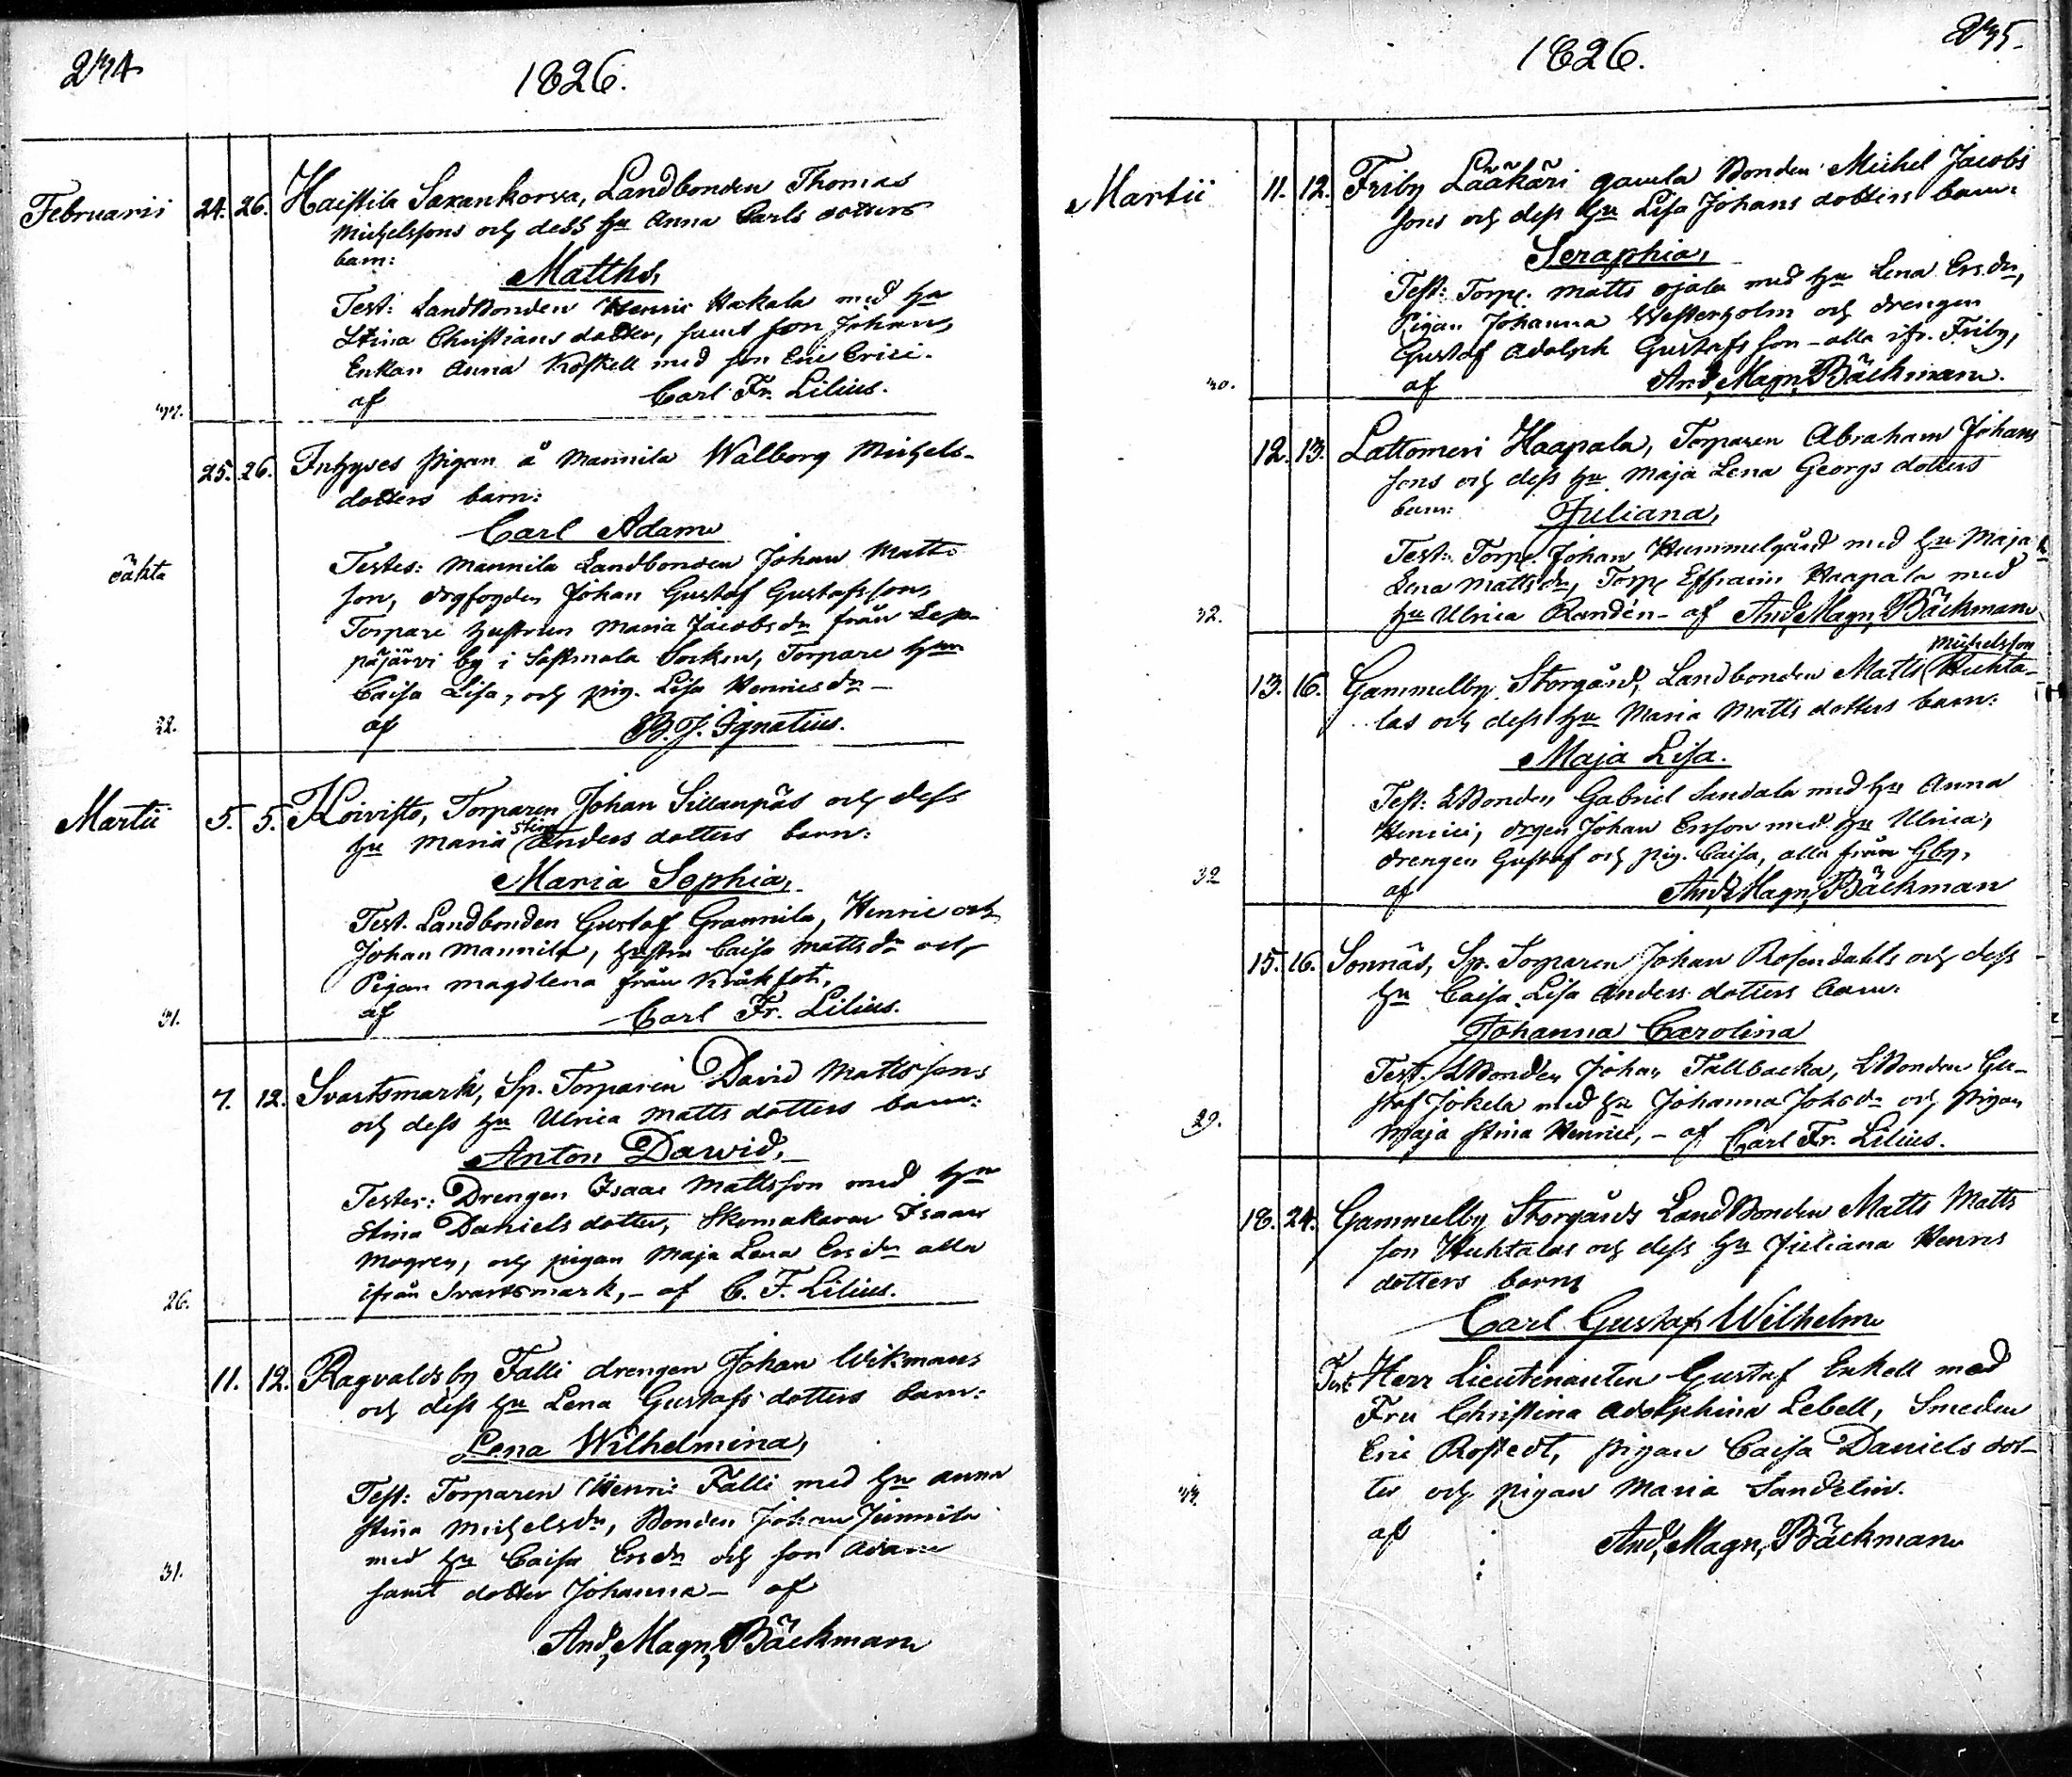 274
1826.
Februarii 24. 26. Haistila Saxankorva, Landbonden Thomas
Michelssons och dess hu Anna Carls dotters
barn:
Matths,
Test: LandBonden Henric Hakala med hu
Stina Christians dotter, samt son Johan,
Enkan Anna Koskell med son Eric Erici.
af Carl Fr. Lilius.
25. 26. Inhyses pigan å Mannila Walborg Michels-
dotters barn:
Carl Adam
oäkta
Testes: Mannila Landbonden Johan Matts
son, Johan Gustaf Gustafsson,
Torpare hustrun Maria Jacobs dr från Lep-
päjärvi by i Sastmola Socken, Torpare hun
Caisa Lisa, och pig. Lisa Henrics dr -
22. af B. J. Ignatius.
Martii 5. 5. Koivisto, Torparen Johan Sillanpäs och dess
Stina
hu Maria Anders dotters barn:
Maria Sophia,
Test. Landbonden Gustaf Grannila, Henric och
Johan Mannila, hustru Caisa Matts dr och
Pigan Magdlena från Kråkfot,
31. af Carl Fr. Lilius.
7. 12. Svartsmark, Sp. Torparen David Mattssons
och dess hu Ulrica Matts dotters barn:
Anton Dawid,
Testes: Drengen Isaac Mattsson med hu
Stina Daniels dotter, Skomakaren Isaac
Mogren, och pigan Maja Lena Ers dr alla
26. ifrån Svartsmark, - af C. F. Lilius.
11. 12. Ragvaldsby Falli drengen Johan Wikmans
och dess hu Lena Gustafs dotters barn:
Lena Wilhelmina,
Test: Torparen Henric Falli med hu Anna
Stina Michels dr, Bonden Johan Jinnila
med hu Caisa Ers dr och son Adam
31. samt dotter Johanna - af
And, Magn, Bäckman
275.
1826.
Martii 11. 12. Friby Lääkäri gamla Bonden Michel Jacobs
sons och dess hu Lisa Johans dotters barn:
Seraphia,
Test: Torp. Matts Ojala med hu Lena Ers. dr,
Pigan Johanna Westerholm och drengen
Gustaf Adolph Gustafs son - alla ifr. Friby,
40. af And, Magn, Bäckman.
12. 13. Lattomeri Haapala, Torparen Abraham Johans
sons och dess hu Maja Lena Georgs dotters
barn: Juliana,
Test: Torp. Johan Hummelgård med hu Maja
Lena Matts dr, Torp. Effraim Haapala med
32. hu Ulrica Randén - af And, Magn, Bäckman
Michelsson
13. 16. Gammelby Storgård, Landbonden Matts Huhta-
las och dess hu Maria Matts dotters barn:
Maja Lisa.
Test: LBonden Gabriel Sandala med hu Anna
Henrici, drgen Johan Ersson med hu Ulrica,
drengen Gustaf och pig. Caisa, alla från Gby,
32 af And, Magn, Bäckman
15. 16. Sonnäs, Sp. Torparen Johan Rosendahls och dess
hu Caisa Lisa Anders dotters barn:
Johanna Carolina
Test. LBonden Johan Tallbacka, LBonden Gu-
staf Jokela med hu Johanna Johs dr och pigan
29. Maja Stina Henrici, - af Carl Fr. Lilius.
18. 24. Gammelby Storgårds LandBonden Matts Matts
son Huhtalas och dess hu Juliana Henrics
dotters barn
Carl Gustaf Wilhelm
Test. Herr Lieutenanten Gustaf Enkell med
Fru Christina Adolphina Lebell, Smeden
Eric Rostedt, pigan Caisa Daniels dot-
ter och pigan Maria Sandelin.
af And, Magn, Bäckman